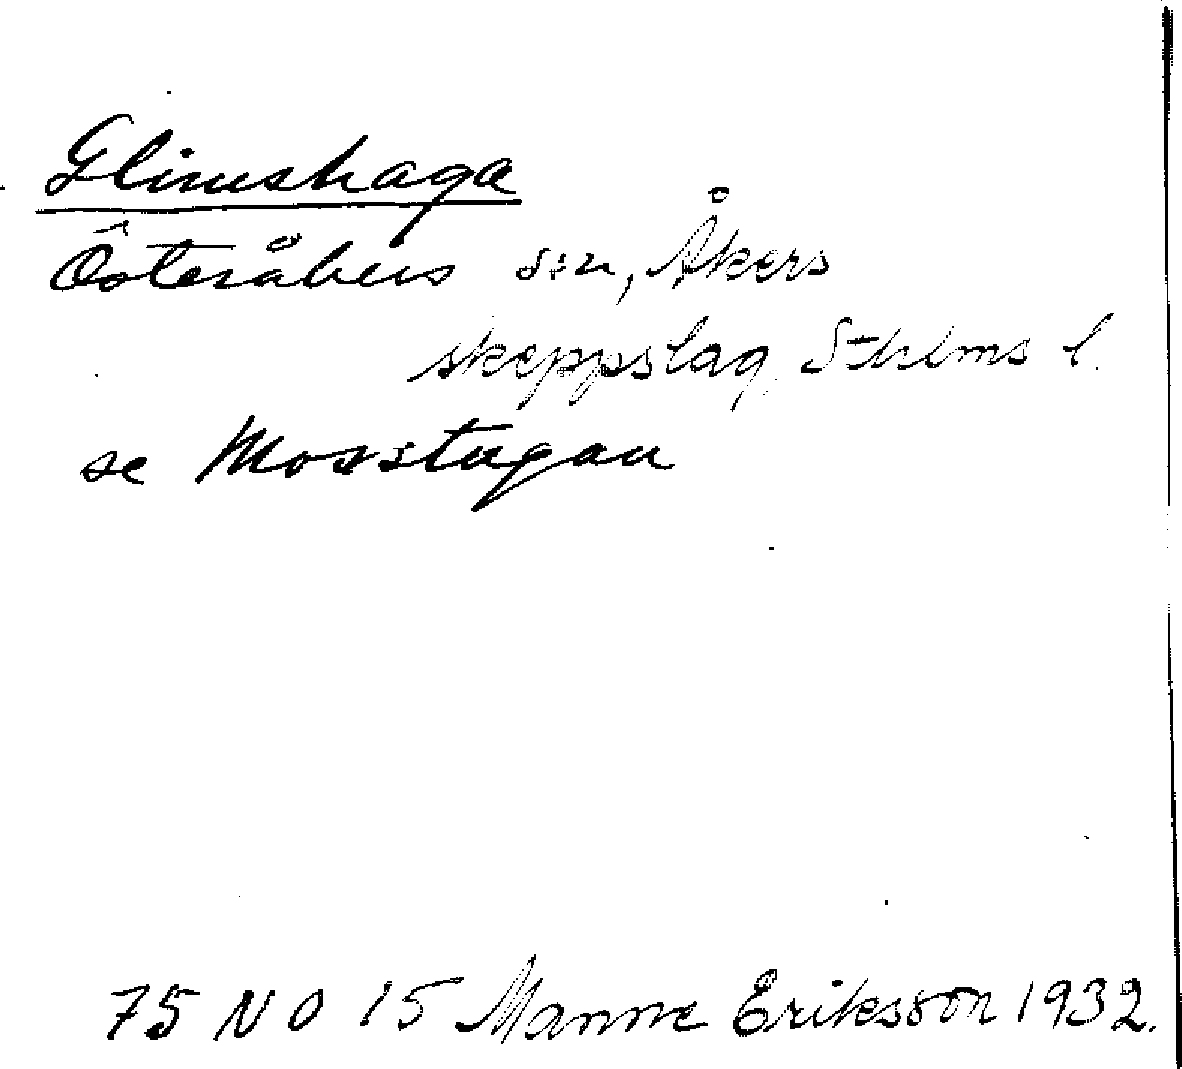 Glimshaga
Österåkers ssn, Åkers
skeppslag, Sthlms l.
se Mosstugan
75 NO 15 Manne Eriksson 1932.